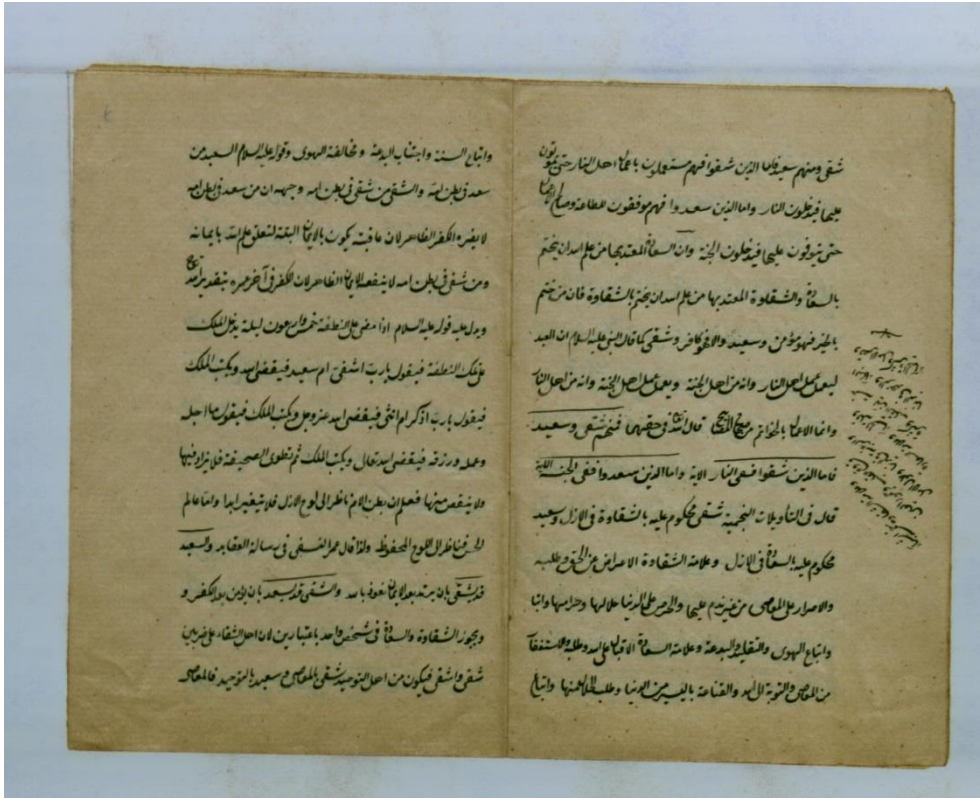 شقى ومنهم سعيد فاما الذين شقوا فهم مستعملون باعمال اهل النار حتى يتوفون
عليها فيدخلون النار واما الذين سعدوا فهم موفقون للطاعة وصالح
حتى يتوفون عليها فيدخلون الجنة وان السعادة المعتد بها من علم الله ان يختم
بالسعادة والشقاوة المعتد بها من علم الله ان يختم بالشقاوة فان من ختم
بالخير فهو مؤمن وسعيد والا فهو كافر وشقى كما قال النبى عليه السلام ان العبد
ليعمل عمل اهل النار وانه من اهل الجنة ويعمل عمل اهل الجنة وانه من اهل النار
وانما الاعمال بالخواتم من قال الله فى حقهما فمنهم شقى وسعيد
فاما الذين شقوا ففى النار الاية واما الذين سعدوا ففى الجنة الاية
قال فى التأويلات النجمية شقى محكوم عليه بالشقاوة فى الازل وسعيد
محكوم عليه بالسعادة فى الازل وعلامة الشقاوة الاعراض عن الحق وطلبه
والاصرار على المعاصى من غير ندم عليها والحرص على الدنيا حلالها وحرامها واتبا
واتباع الهوى والتقليد والبدعة وعلامة السعادة الاقبال على الله وطلبه والاستغفار
من المعاصى والتوبة الى الله والقناعة باليسير من الدنيا وطلب الحلال منها واتباع
واتباع السنة واجتناب البدعة ومخالفة الهوى وقوله عليه السلام السعيد من
سعد فى بطن امه والشقى من شقى فى بطن امه وجهه ان من سعد فى بطن امه
لا يضره الكفر الظاهر لان عاقبته يكون بالايمان البتة لتعلق علم الله بايمانه
ومن شقى فى بطن امه لا ينفعه الايمان الظاهر لان الكفر فى آخر عمره بتقدير الله
ويدل عليه قوله عليه السلام اذا مضى على النطفة خمس واربعون ليلة يدخل الملك
على تلك النطفة فيقول يا رب اشقى ام سعيد فيقضى الله ويكتب الملك
فيقول يا رب اذكر ام انثى فيقضى الله عز وجل ويكتب الملك فيقول ما اجله
وعمله ورزقه فيقضى الله تعالى ويكتب الملك ثم تطوى الصحيفة فلا يزاد فيها
ولا ينقص منها فعلم ان بطن الام ناظر الى لوح الازل فلا يتغير ابدا واما عالم
الحس فناظر الى اللوح المحفوظ ولذا قال عمر النسفى فى رسالة العقايد والسعيد
قد يشقى بان يرتد بعد الايمان نعوذ بالله والشقى قد يسعد بان يؤمن بعد الكفر و
ويجوز الشقاوة والسعادة فى شخص واحد باعتبارين لان اهل الشقاء على ضربين
شقى واشقى فيكون من اهل التوحيد شقى بالمعاصى وسعيد بالتوحيد فالمعاصى